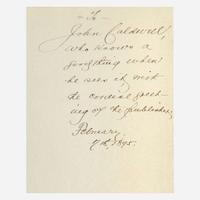 To
John Caldwell,
who knows a
good thing when
he sees it, with
the cordial greet-
ing of the publisher,
February
7th 1895.